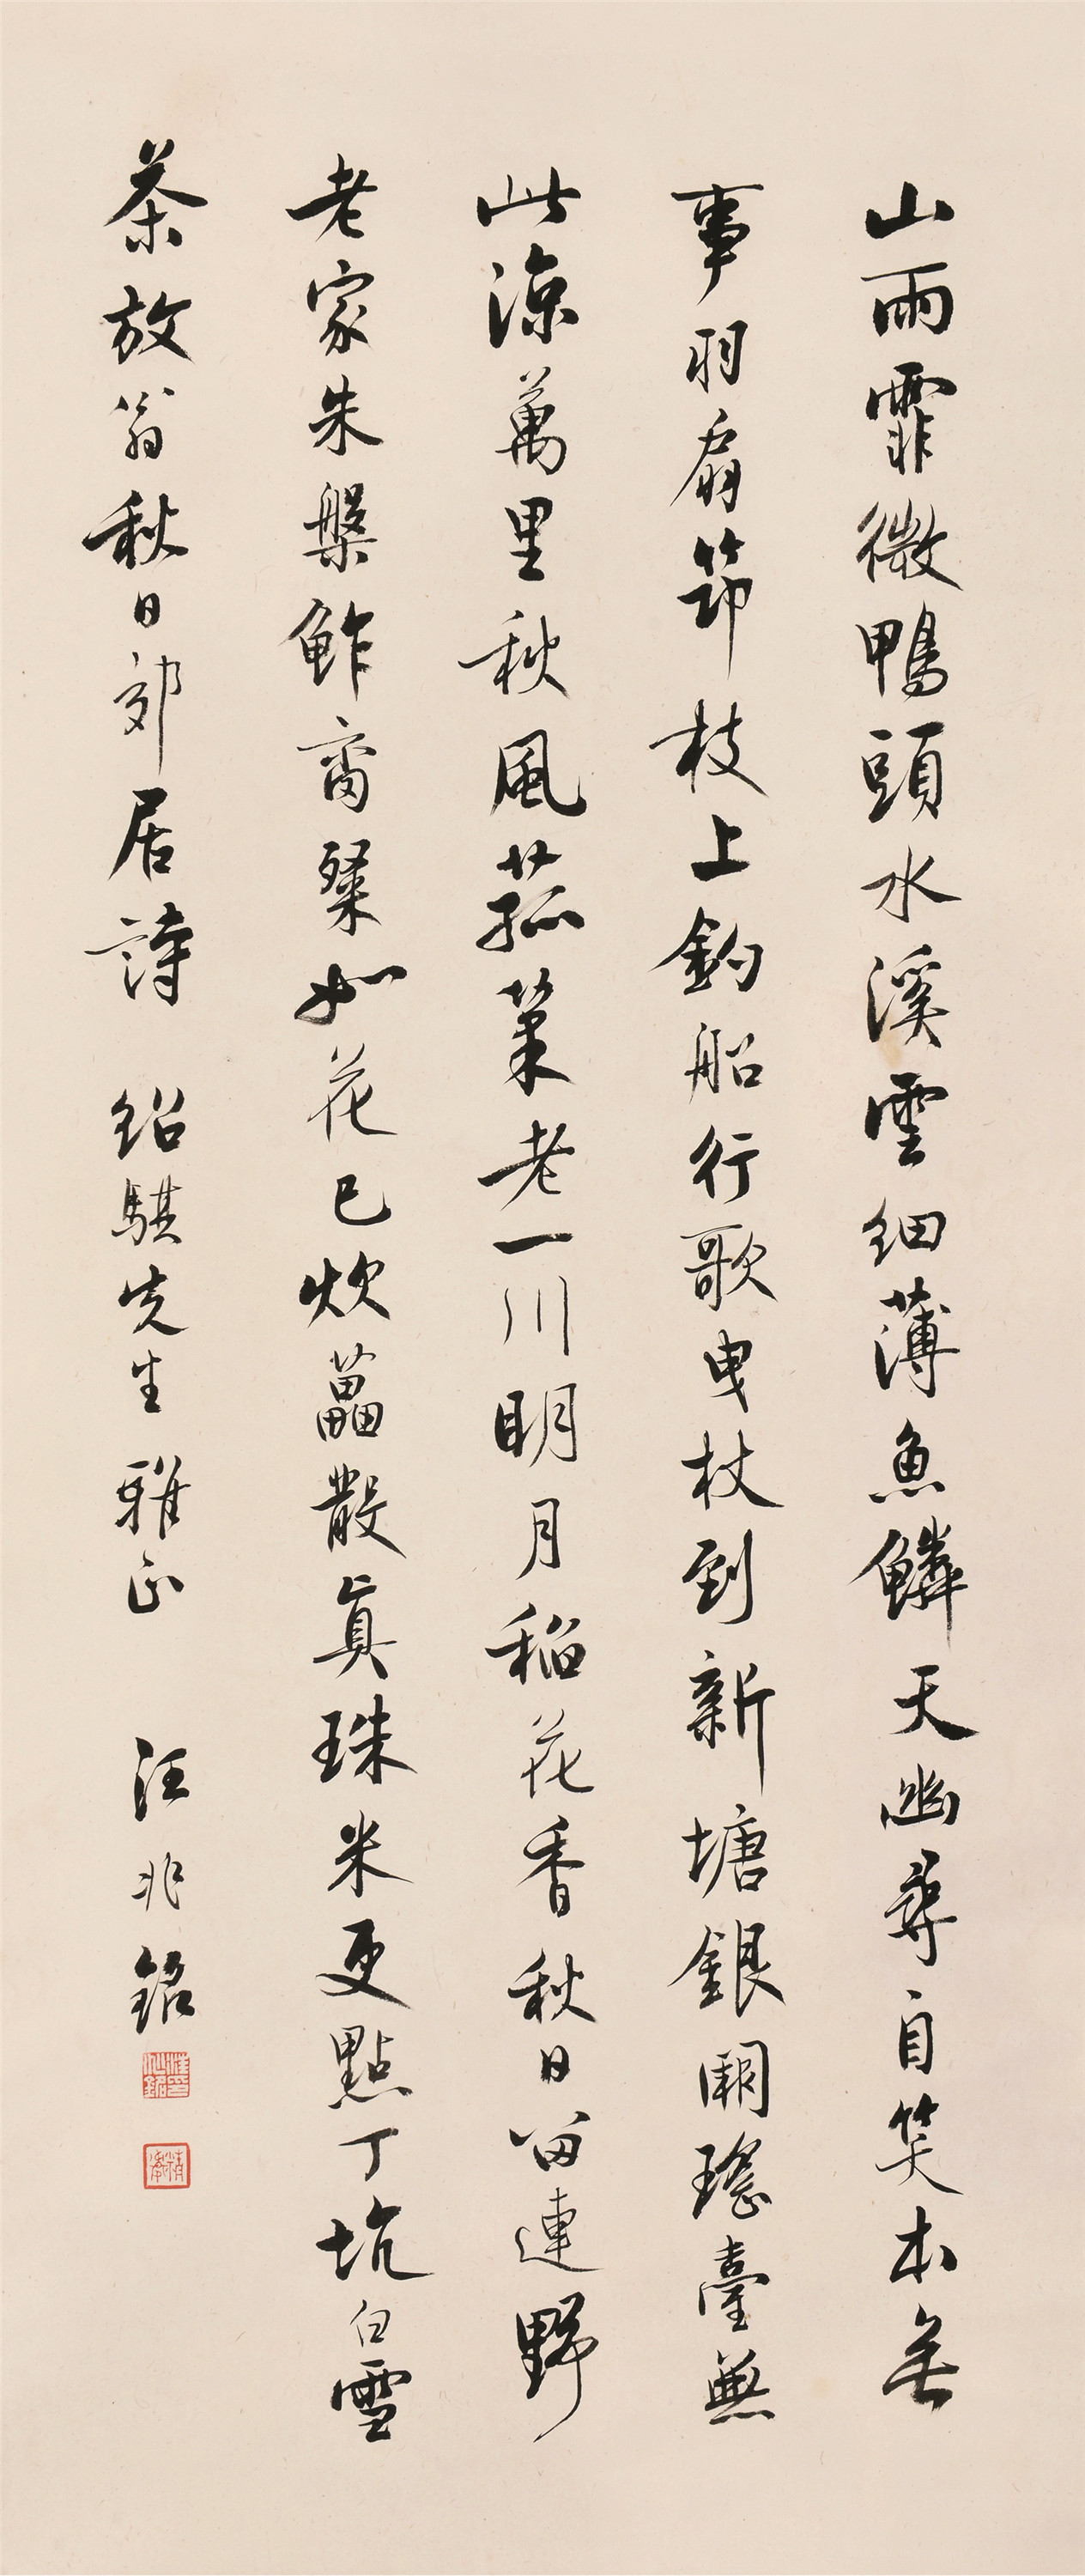 山雨霏微鴨頭水溪雲細薄魚鱗天幽尋自笑本無
事羽扇筇枝上釣船行歌曳杖到新塘銀闕瑤臺無
此涼萬里秋風菰菜老一川明月稻花香秋日留連野
老家朱槃鮓臠粲如花已炊藟散真珠米更點丁坑白雪
茶放翁秋日郊居詩 紹騏先生雅正 汪兆銘